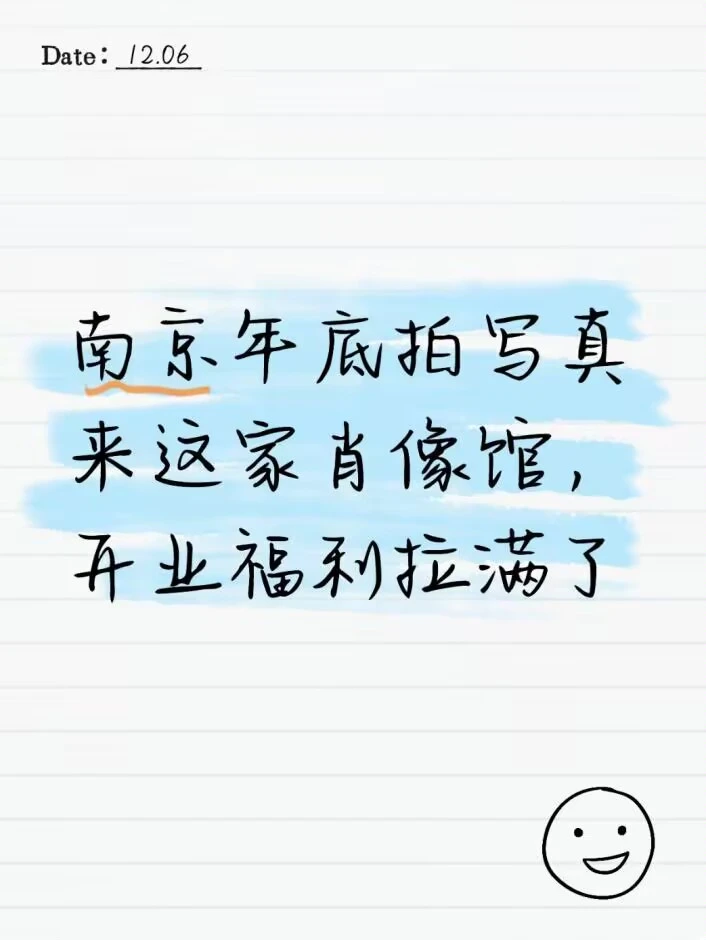 Date: 12.06
南京年底拍写真
来这家肖像馆，
开业福利拉满了